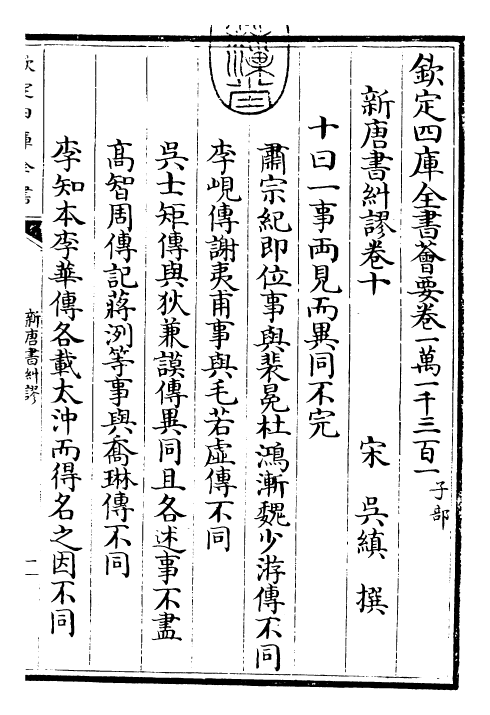 欽定四庫全書薈要卷一萬一千三百一 子部
新唐書糾謬卷十
宋 吳縝 撰
十曰一事兩見而異同不完
肅宗紀即位事與裴冕杜鴻漸魏少游傳不同
李峴傳謝夷甫事與毛若虛傳不同
吳士矩傳與狄兼謨傳異同且各述事不盡
髙智周傳記蔣洌等事與喬琳傳不同
李知本李華傳各載太沖而得名之因不同
欽定四庫全書
新唐書糾謬
一